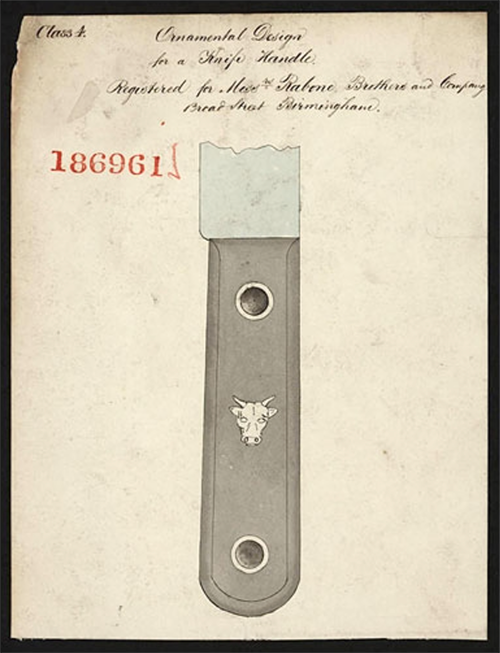 Class 4.
Ornamental Design
for a Knife Handle.
Registered for Messrs Rabone, Brothers and Company
Broad Street Birmingham.
186961